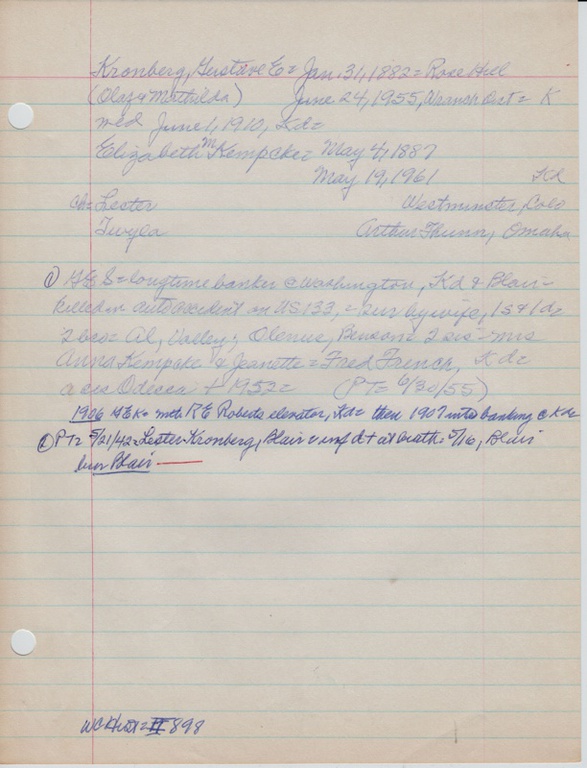 Kronberg, Gustave E = Jan 31, 1882 = Rose Hill
(Olaf & Mathilda) June 24, 1955, = K
med June 1, 1910, Kd =
Elizabeth M Kempcke = May 4, 1887
May 19, 1961 Kd
Ch = Lester Westminster, Colo
Twyla Arthur Thunn, Omaha
① = longtime banker @ Washington, Kd & Blair =
killed in auto accident on US 133, = sur by wife, 1s & 1d =
2 bro = Al, Valley; Olenus, Benson = 2 sis = mrs
Anna Kempcke & Jeanette = Fred French, Kd =
a sis Odessa + 1952 = (PT = 6/30/55)
1906 GEK = with R E Roberts elevator, Kd = then 1907 into banking @ Kd =
② PT = 5/21/42 = Lester Kronberg, Blair = inf d + at birth = 5/16, Blair
bur Blair
WC Hist = II 898